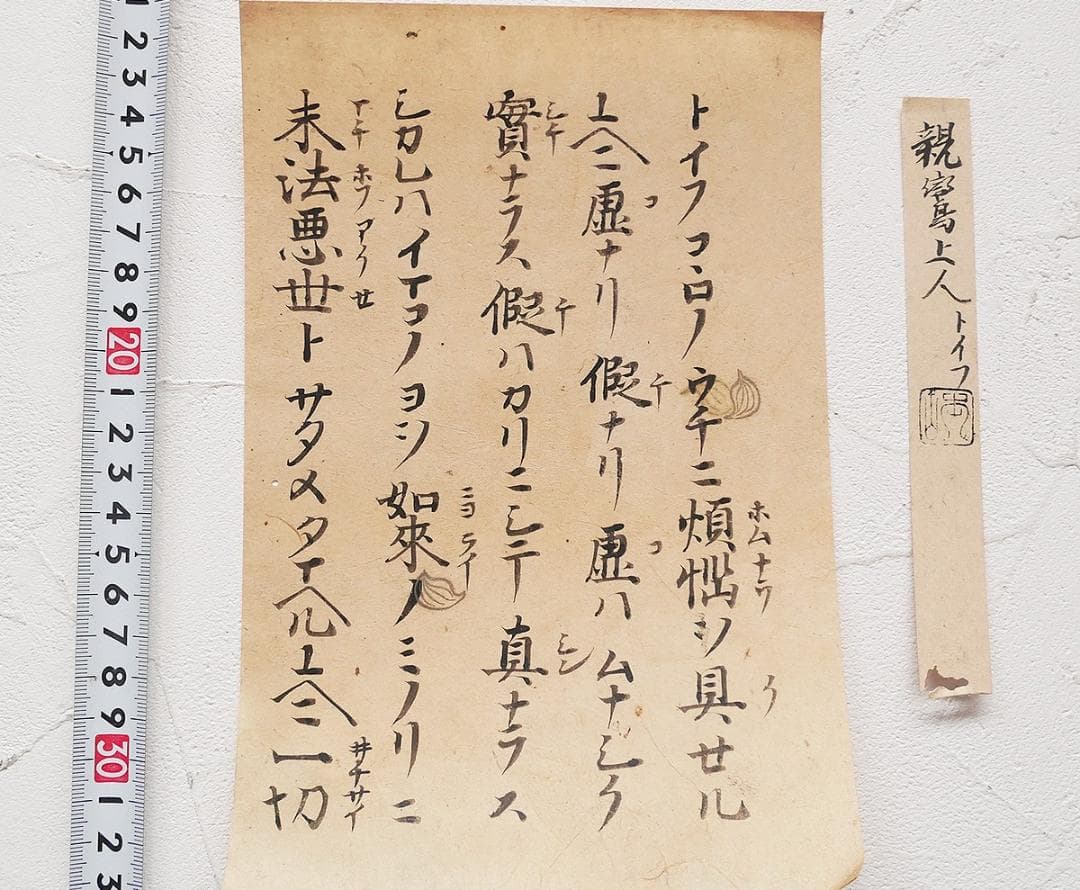 親鸞上人トイフ
トイフコヽロノウチニ煩惱ヲ具セル
ホムナウ ク
ユヘニ虚ナリ假ナリ虚ハムナシク
コ ケ コ
實ナラス假ハカリニシテ真ナラス
シチ ケ シン
シカレハイマコノヨヲ如來ノミノリニ
ニヨライ
末法悪世トサタメタマヘルユヘニ一切
マチ ホフ アク セ 井チサイ
1 2 3 4 5 6 7 8 9 20 1 2 3 4 5 6 7 8 9 30 1 2 3